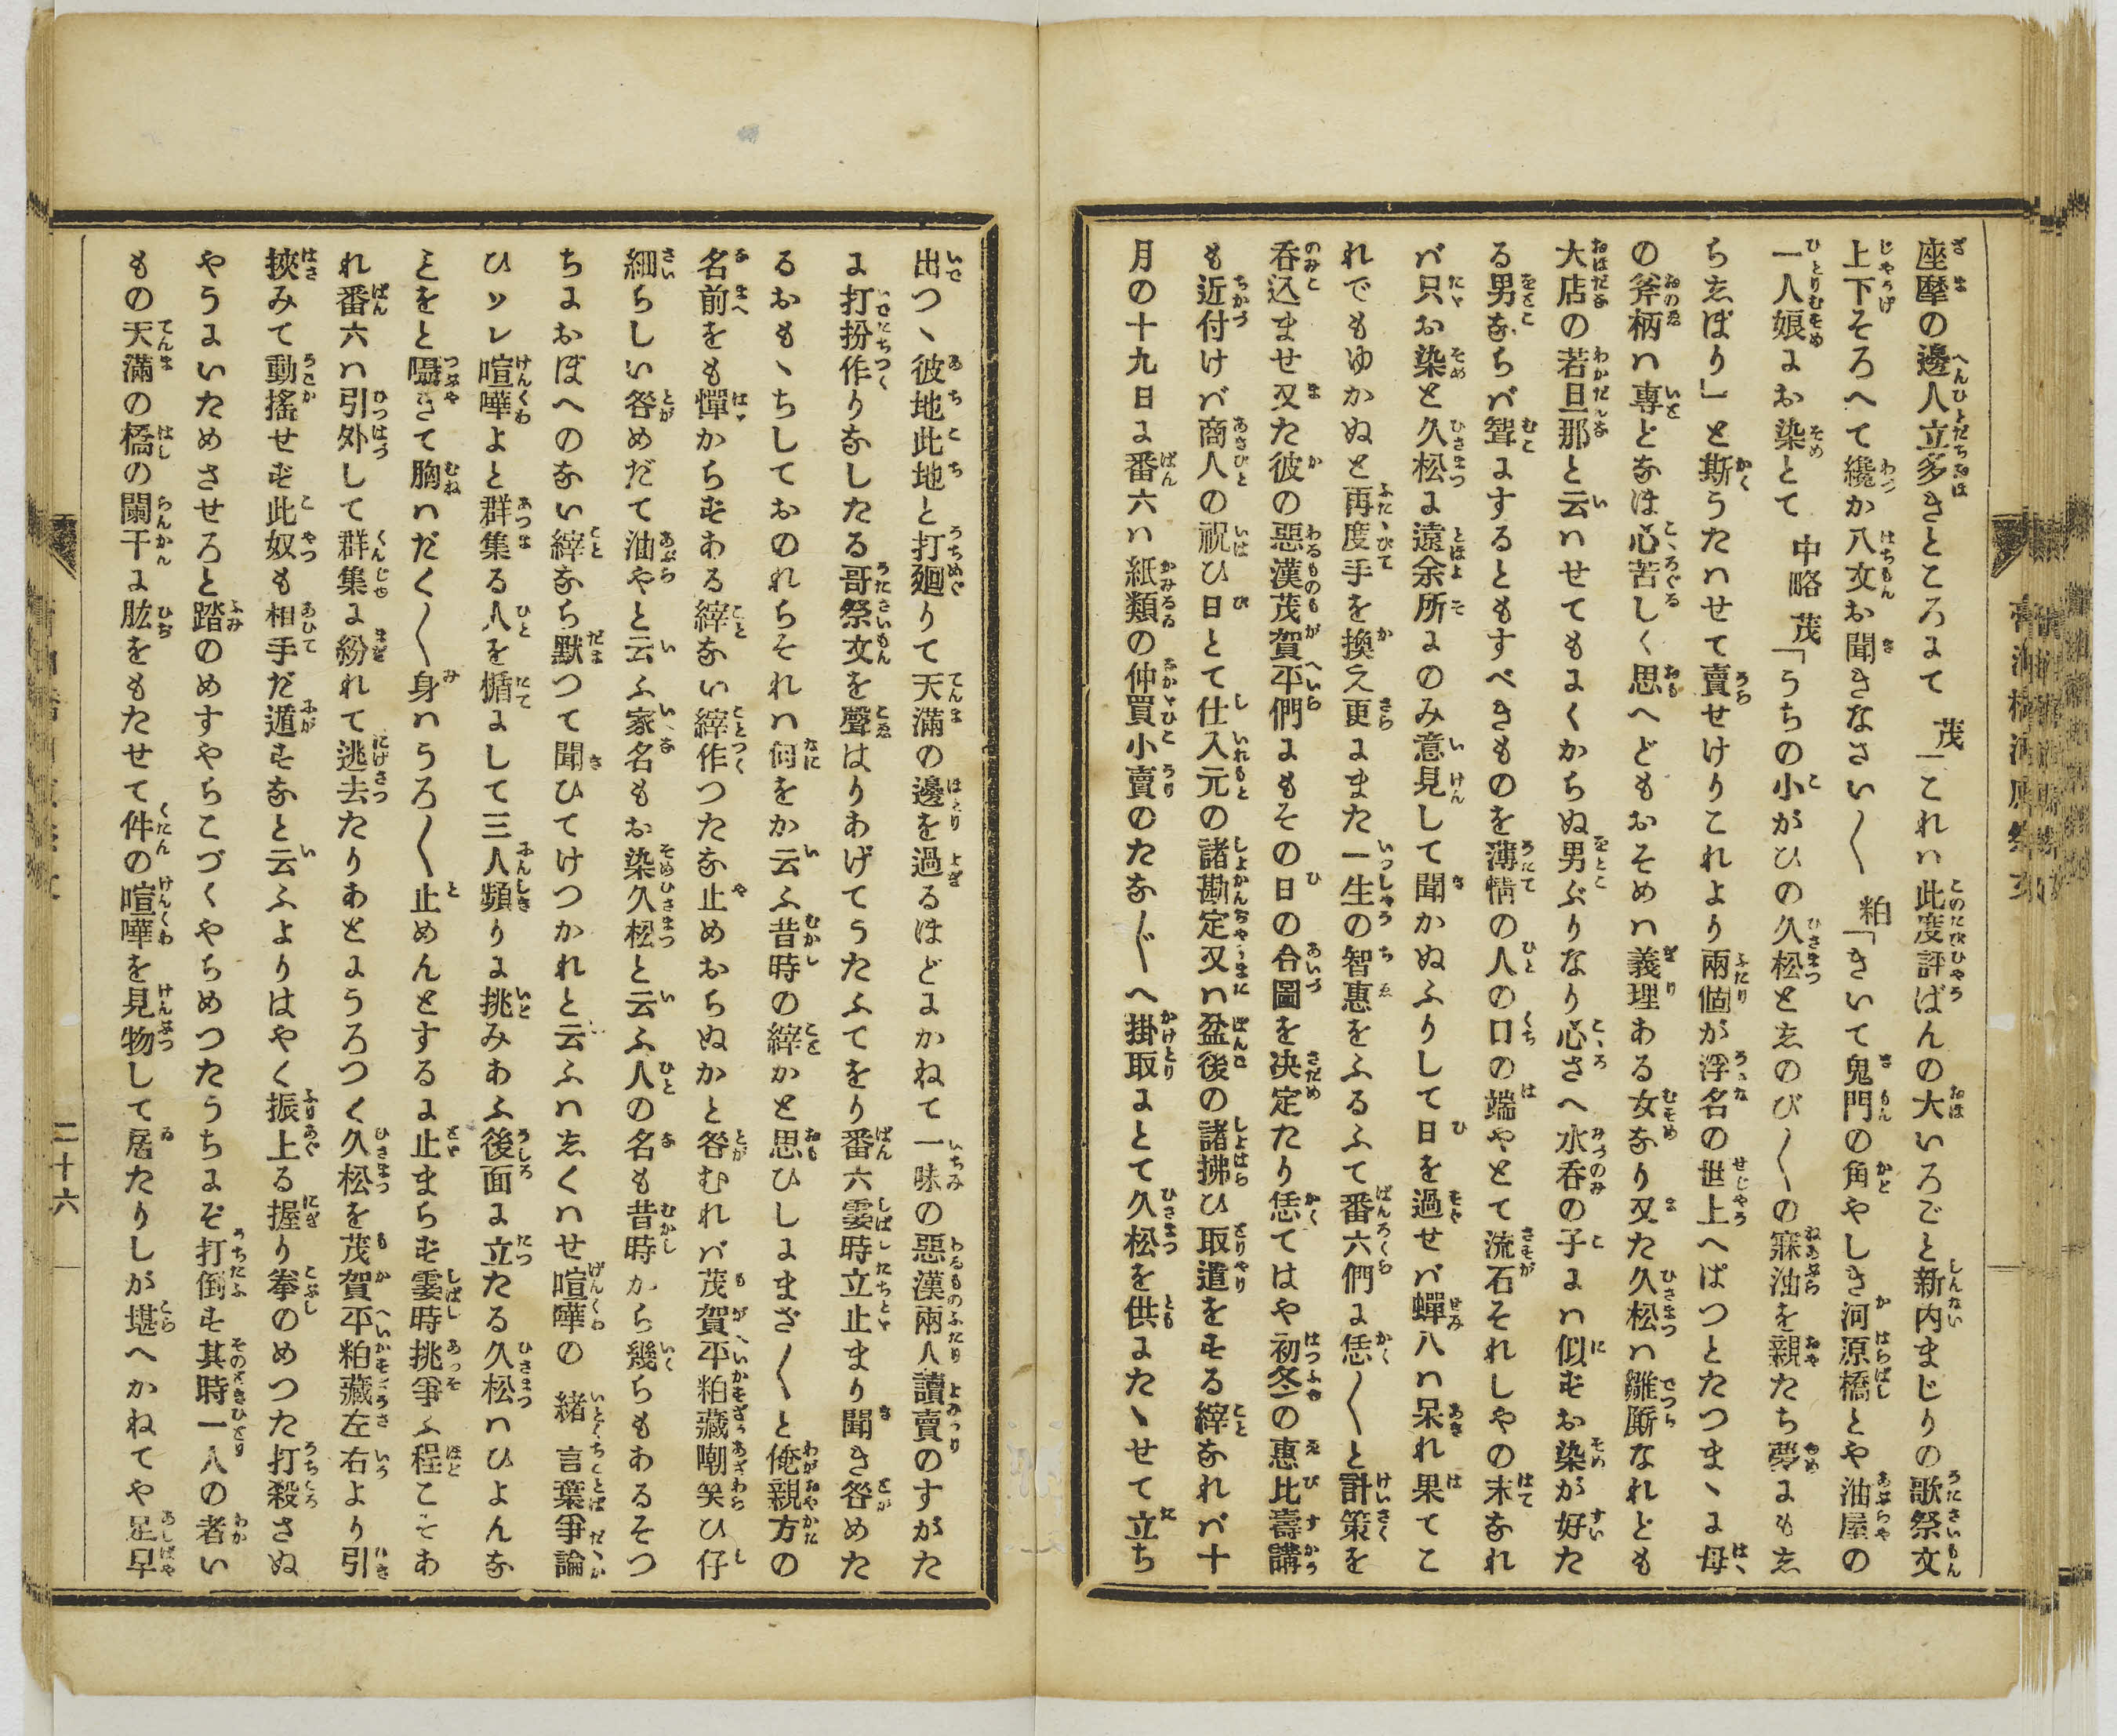 座摩の邊人立多きところにて 茂「これハ此度評ばんの大いろごと新内まじりの歌祭文
上下そろへて纔か八文お聞きなさい〱 粕「きいて鬼門の角やしき河原橋とや油屋の
一人娘にお染とて 中略 茂「うちの小がひの久松とゑのび〱の寐油を親たち夢にもゑ
ちゑぼり」と斯うたハせて賣せけりこれより兩個が浮名の世上へぱつとたつまゝに母
の斧柄ハ専となは心苦しく思へどもおそめハ義理ある女なり又た久松ハ雛厮なれども
大店の若旦那と云ハせてもにくかちぬ男ぶりなり心さへ水呑の子にハ似ずお染が好た
る男ならバ聟にするともすべきものを薄情の人の口の端やとて流石それしやの末なれ
バ只お染と久松に遠余所にのみ意見して聞かぬふりして日を過せバ蟬八ハ呆れ果てこ
れでもゆかぬと再度手を換え更にまた一生の智惠をふるふて番六們に恁〱と計策を
呑込ませ又た彼の惡漢茂賀平們にもその日の合圖を决定たり恁てはや初冬の惠比壽講
も近付けバ商人の祝ひ日とて仕入元の諸勘定又ハ盆後の諸拂ひ取遣をする縡なれバ十
月の十九日に番六ハ紙類の仲買小賣のたな〲へ掛取にとて久松を供にたゝせて立ち
出つゝ彼地此地と打廻りて天滿の邊を過るほどにかねて一味の惡漢兩人讀賣のすがた
に打扮作りなしたる哥祭文を聲はりあげてうたふてをり番六霎時立止まり聞き咎めた
るおもゝちしておのれちそれハ何をか云ふ昔時の縡かと思ひしにまざ〱と俺親方の
名前をも憚かちずわる縡ない縡作つたな止めおちぬかと咎むれバ茂賀平粕藏嘲笑ひ仔
細ちしい咎めだて油やと云ふ家名もお染久松と云ふ人の名も昔時から幾ちもあるそつ
ちにおぼへのない縡なち默つて聞ひてけつかれと云ふハゑくハせ喧嘩の 緒 言葉爭論
ひソレ喧嘩よと群集る人を楯にして三人頻りに挑みあふ後面に立たる久松ハひよんな
ことをと囁きて胸ハだく〱身ハうろ〱止めんとするに止まちず霎時挑爭ふ程こそあ
れ番六ハ引外して群集に紛れて逃去たりあとにうろつく久松を茂賀平粕藏左右より引
挾みて動搖せず此奴も相手だ遁すなと云ふよりはやく振上る握り拳のめつた打殺さぬ
やうにいためさせろと踏のめすやちこづくやちめつたうちにぞ打倒す其時一人の者い
もの天滿の橋の闌干に肱をもたせて件の喧嘩を見物して居たりしが堪へかねてや足早
二十六